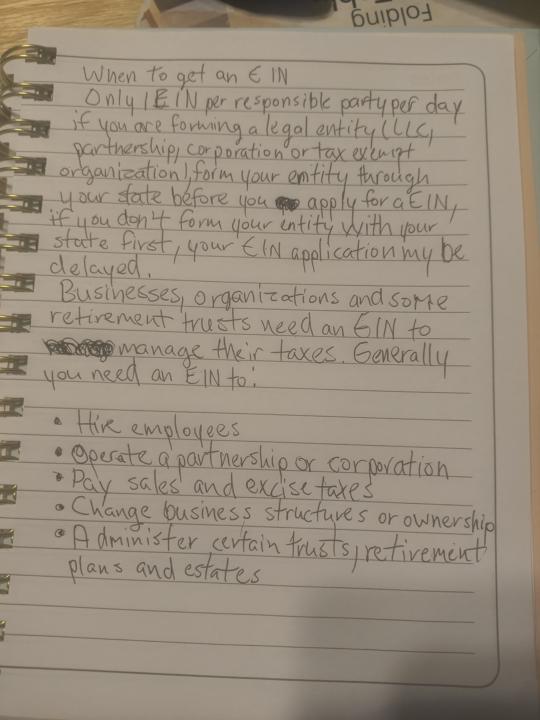 Folding
When to get an EIN
Only 1 EIN per responsible party per day
if you are forming a legal entity (LLC,
partnership, corporation or tax exempt
organization), form your entity through
your state before you apply for a EIN,
if you don't form your entity with your
state first, your EIN application my be
delayed.
Businesses, organizations and some
retirement trusts need an EIN to
manage their taxes. Generally
you need an EIN to:
• Hire employees
• Operate a partnership or corporation
• Pay sales and excise taxes
• Change business structures or ownership
• Administer certain trusts, retirement
plans and estates